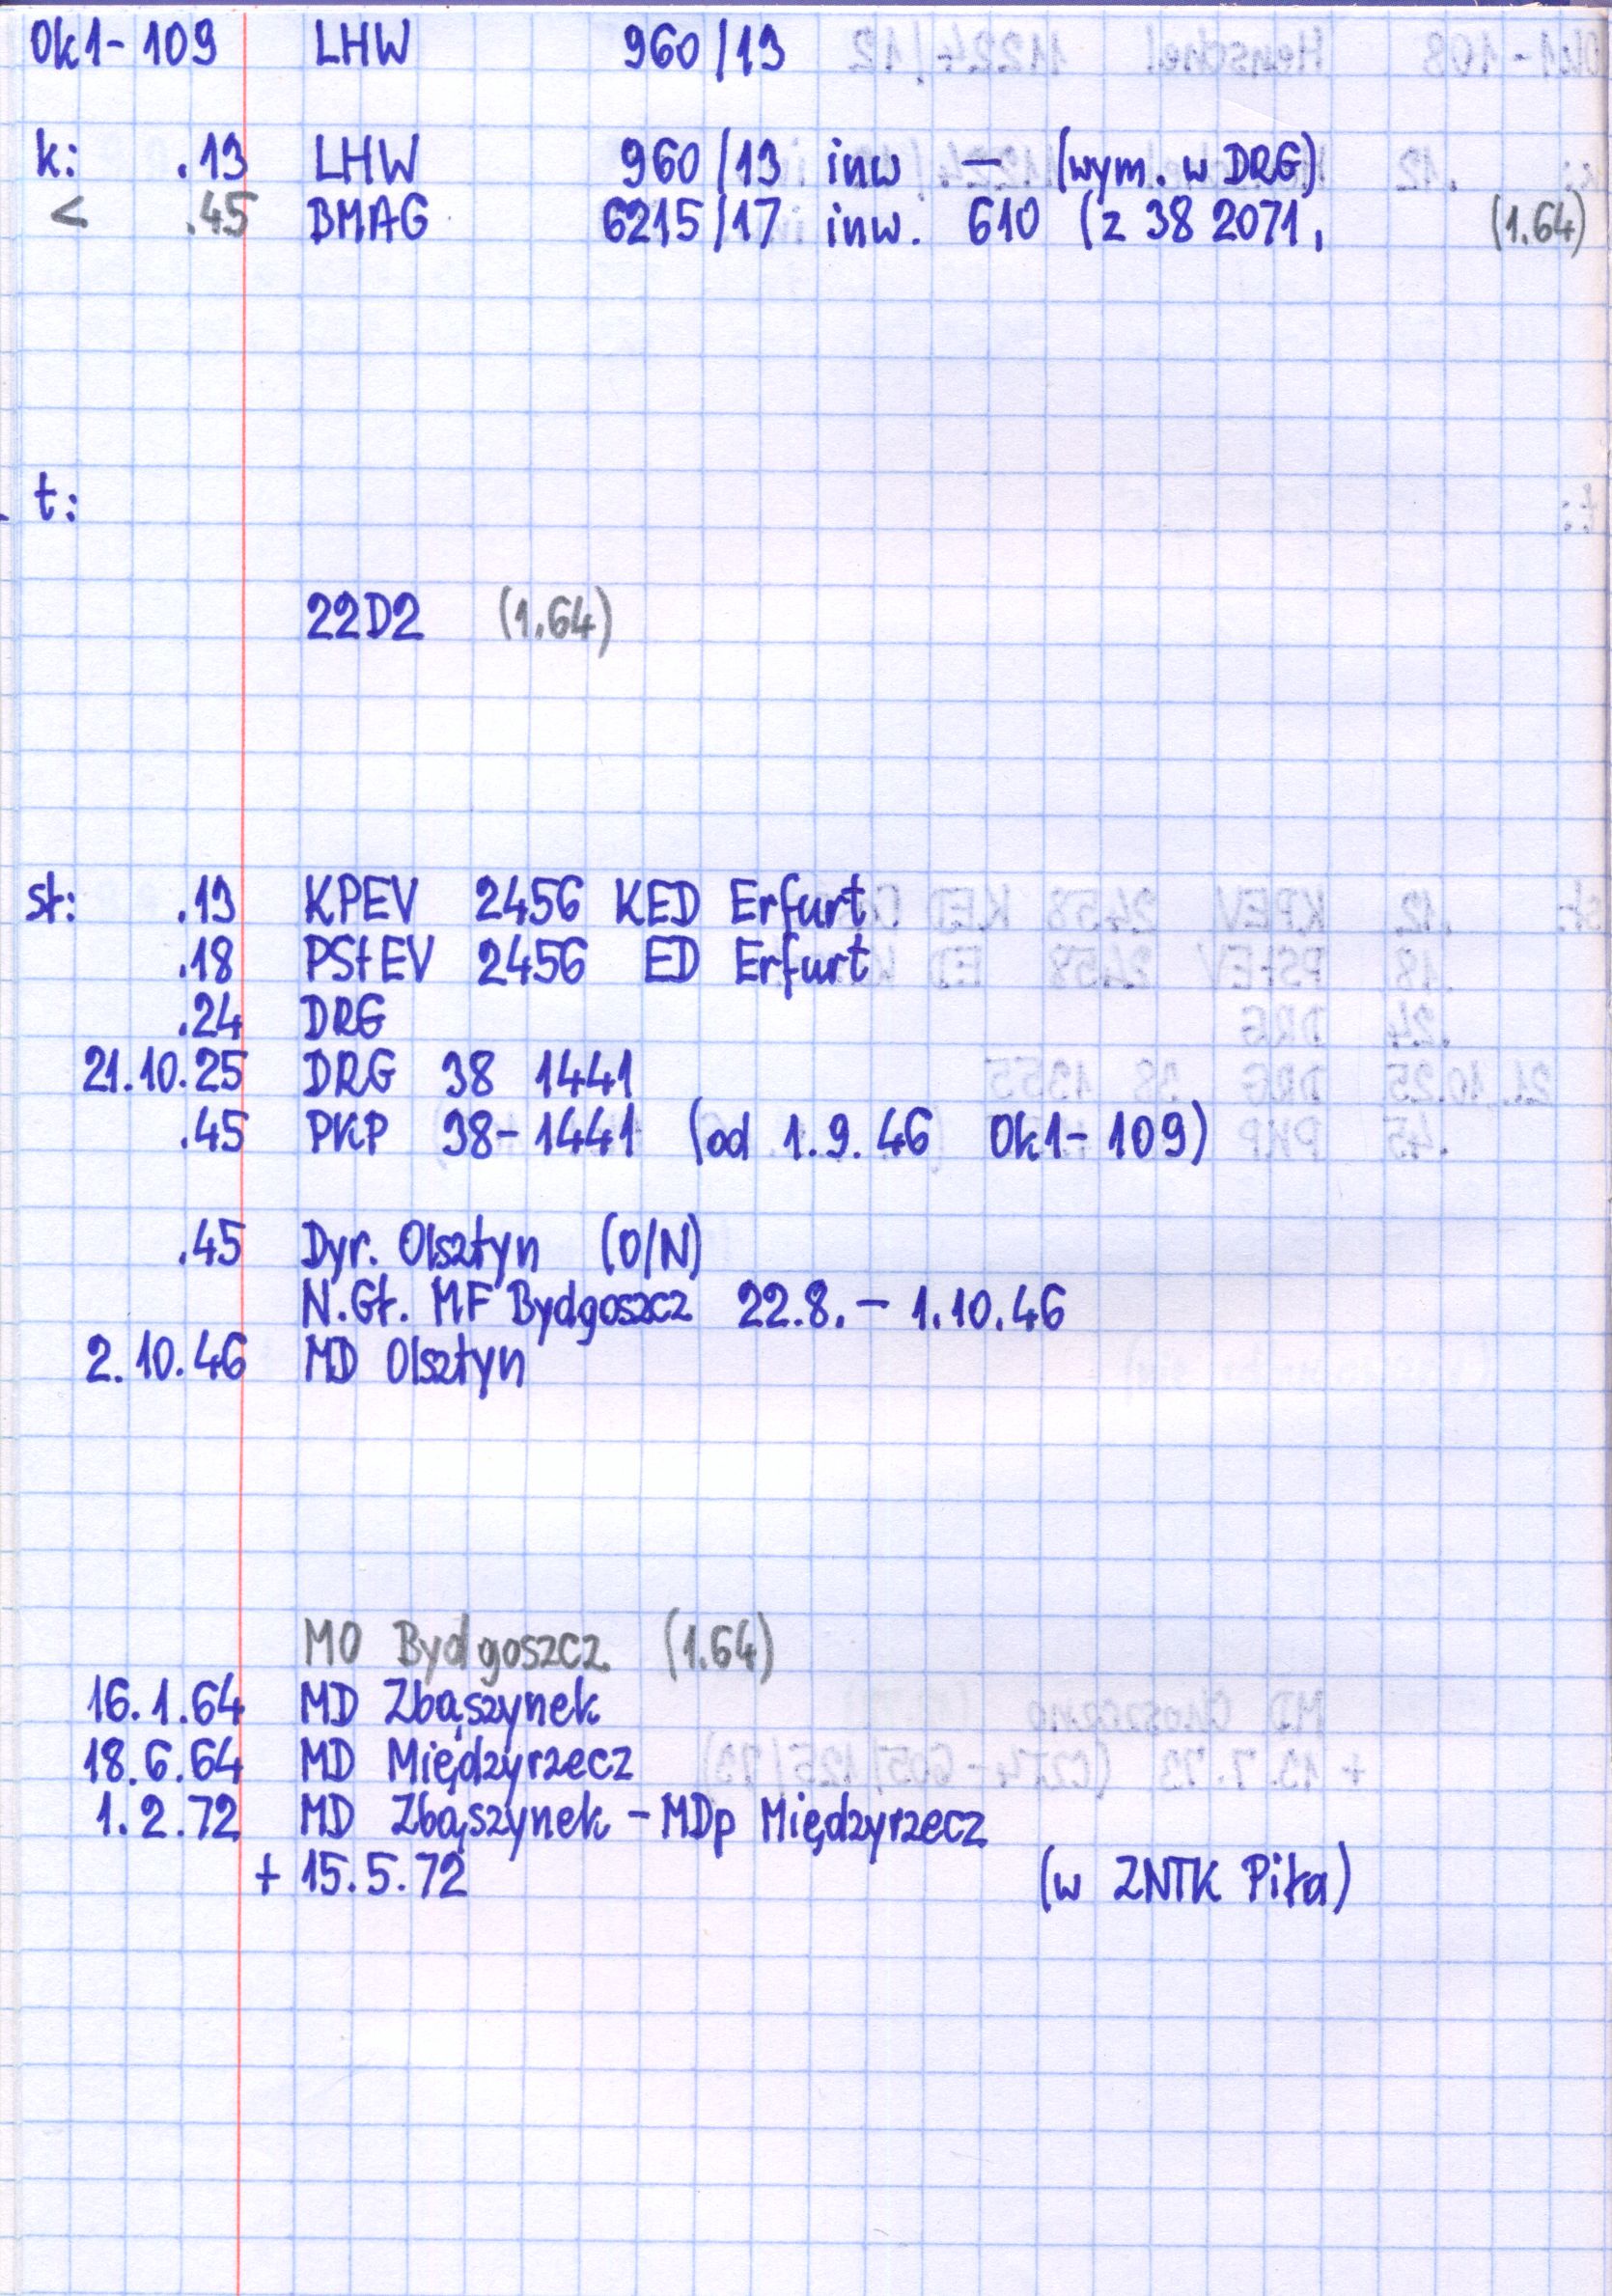 Ok1-109 LHW 960/13
k: .13 LHW 960/13 inw — (wym. w DRG)
< .45 BMAG 6215/17 inw. 610 (z 38 2071, (1.64)
t:
22D2 (1.64)
st: .13 KPEV 2456 KED Erfurt
.18 PStEV 2456 ED Erfurt
.24 DRG
21.10.25 DRG 38 1441
.45 PKP 38-1441 (od 1.9.46 Ok1-109)
.45 Dyr. Olsztyn (O/N)
N.Gł. MF Bydgoszcz 22.8. - 1.10.46
2.10.46 MD Olsztyn
MO Bydgoszcz (1.64)
16.1.64 MD Zbąszynek
18.6.64 MD Międzyrzecz
1.2.72 MD Zbąszynek - MDp Międzyrzecz
+ 15.5.72 (w ZNTK Piła)